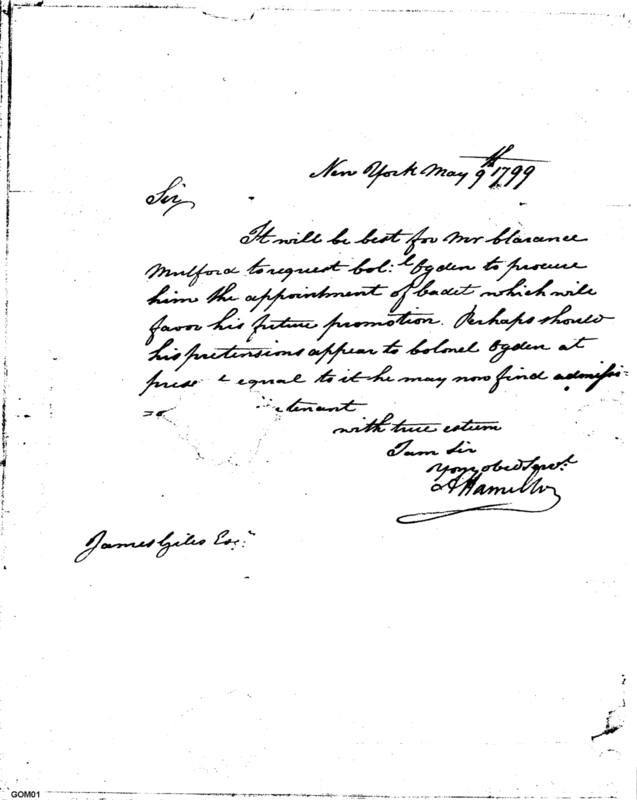 New York May 9th 1799
Sir,
It will be best for Mr Clarance
Mulford to request Col:l Ogden to procure
him the appointment of Cadet which will
favor his future promotion. Perhaps should
his pretensions appear to Colonel Ogden at
prese t equal to it he may now find admissi-
=o tenant
with true esteem
I am Sir
Your obed Servt.
A Hamilton
James Giles Esqr
GOM01